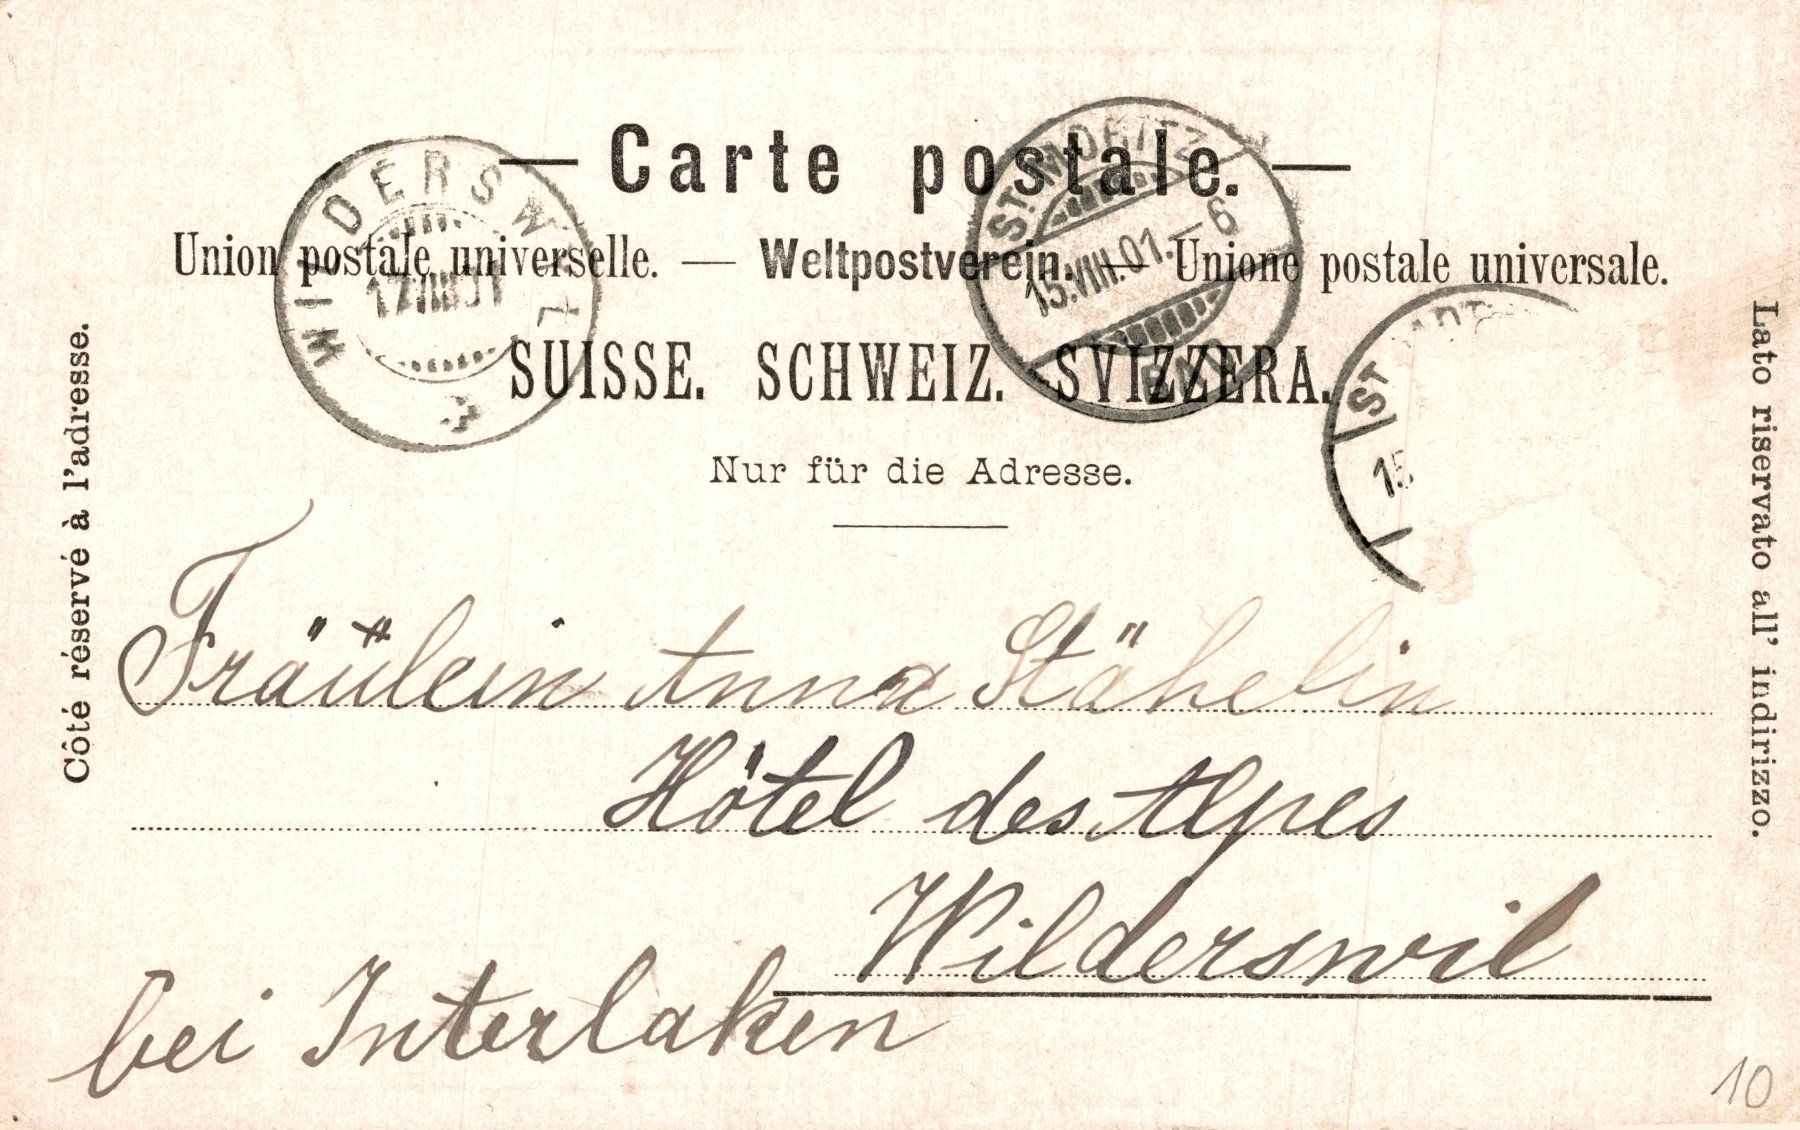 — Carte postale. —
Union postale universelle. — Weltpostverein. — Unione postale universale.
SUISSE. SCHWEIZ. SVIZZERA.
Nur für die Adresse.
Côté réservé à l'adresse.
Lato riservato all' indirizzo.
WILDERSWYL
17.VIII.01
ST. MORITZ
15.VIII.01.–6
BAD
ST. MORITZ
15
Fräulein Anna Stähelin
Hôtel des Alpes
Wilderswil
bei Interlaken
10